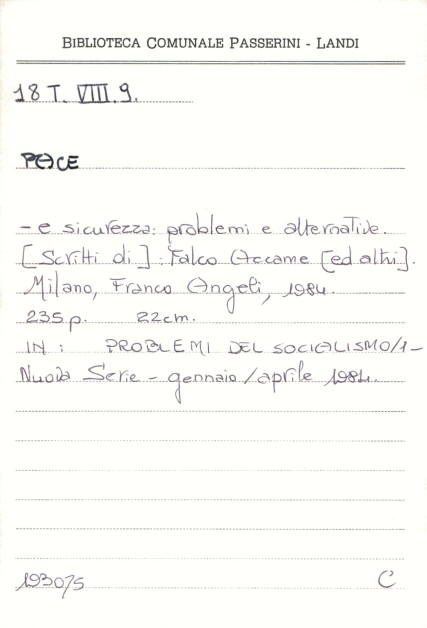 BIBLIOTECA COMUNALE PASSERINI - LANDI
18 T. VIII. 9.
PACE
- e sicurezza: problemi e alternative.
[Scritti di]: Falco Accame [ed altri].
Milano, Franco Angeli, 1984.
235 p. 22 cm.
IN: PROBLEMI DEL SOCIALISMO/1-
Nuova Serie - gennaio/aprile 1984.
193075 C